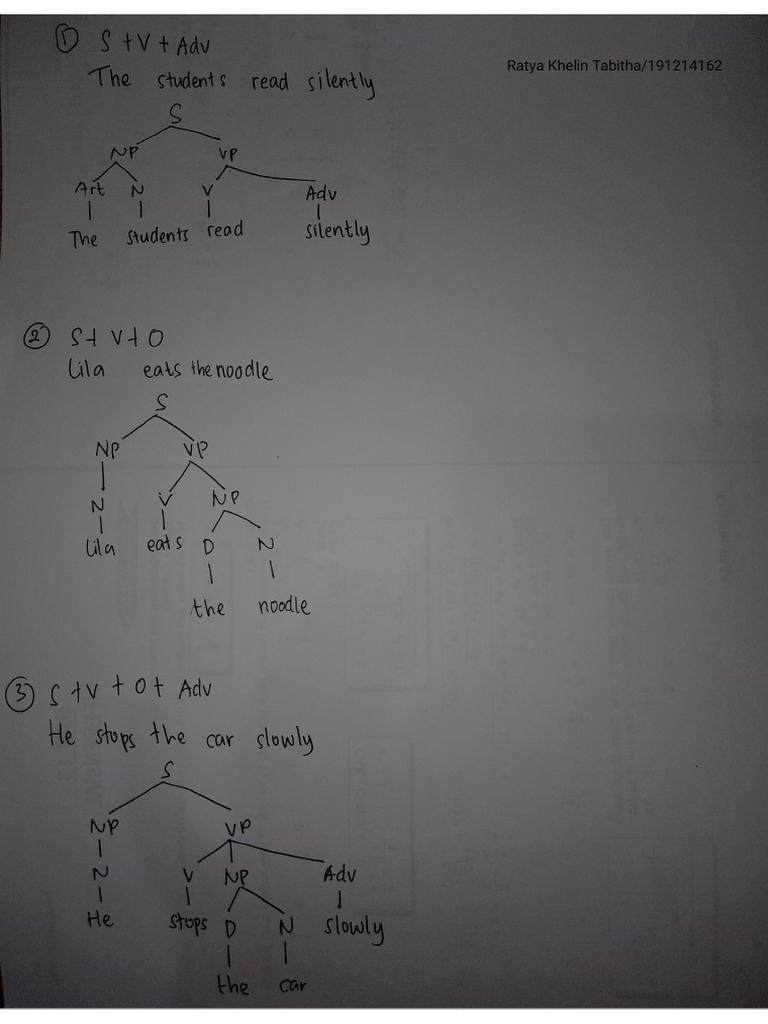 ① S + V + Adv
Ratya Khelin Tabitha/191214162
The students read silently
S
NP VP
Art N V Adv
The students read silently
② S + V + O
Lila eats the noodle
S
NP VP
N V NP
Lila eats D N
the noodle
③ S + V + O + Adv
He stops the car slowly
S
NP VP
N V NP Adv
He stops D N slowly
the car